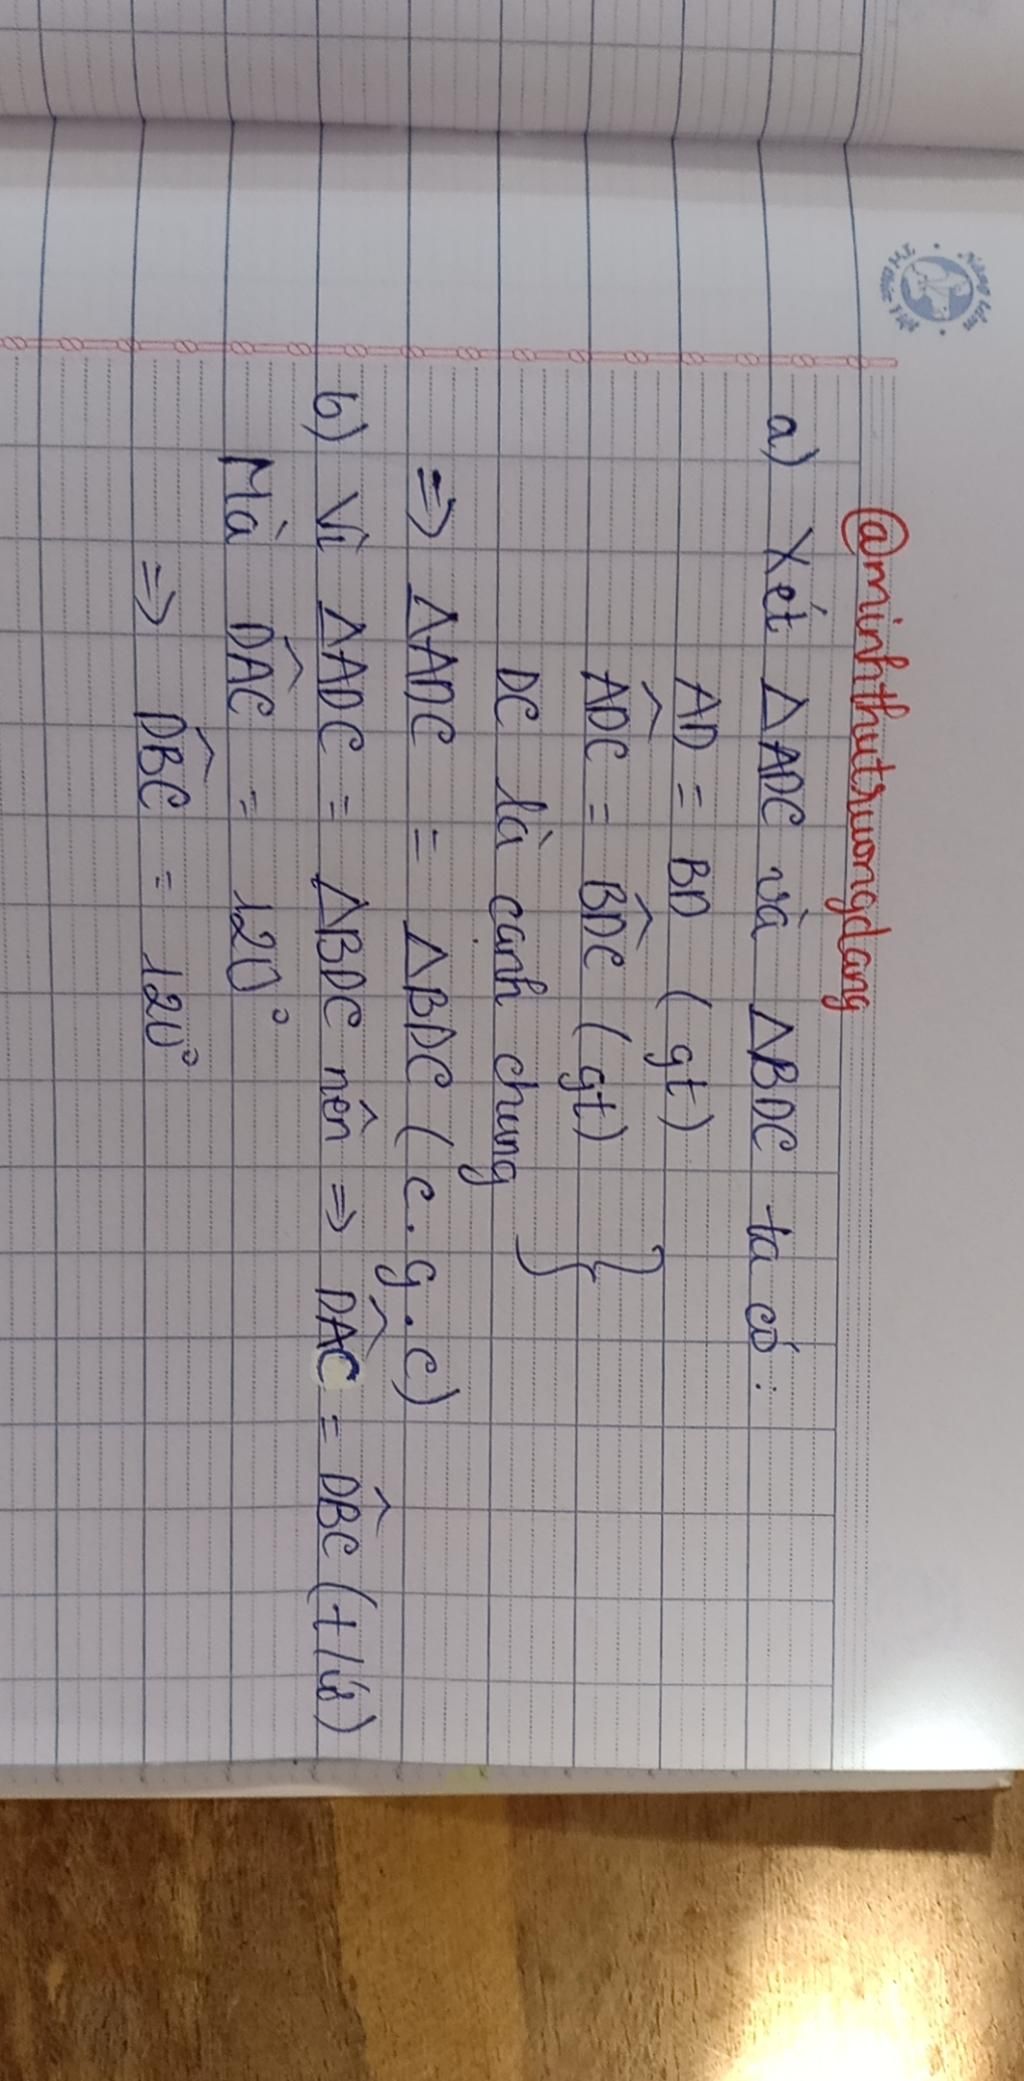 @minhthutruongdang
a) Xét ΔADC và ΔBDC ta có :
AD = BD (gt)
\widehat{ADC} = \widehat{BDC} (gt)
DC là cạnh chung
=> ΔADC = ΔBDC (c.g.c)
b) Vì ΔADC = ΔBDC nên => \widehat{DAC} = \widehat{DBC} (t/ứ)
Mà \widehat{DAC} = 120°
=> \widehat{DBC} = 120°